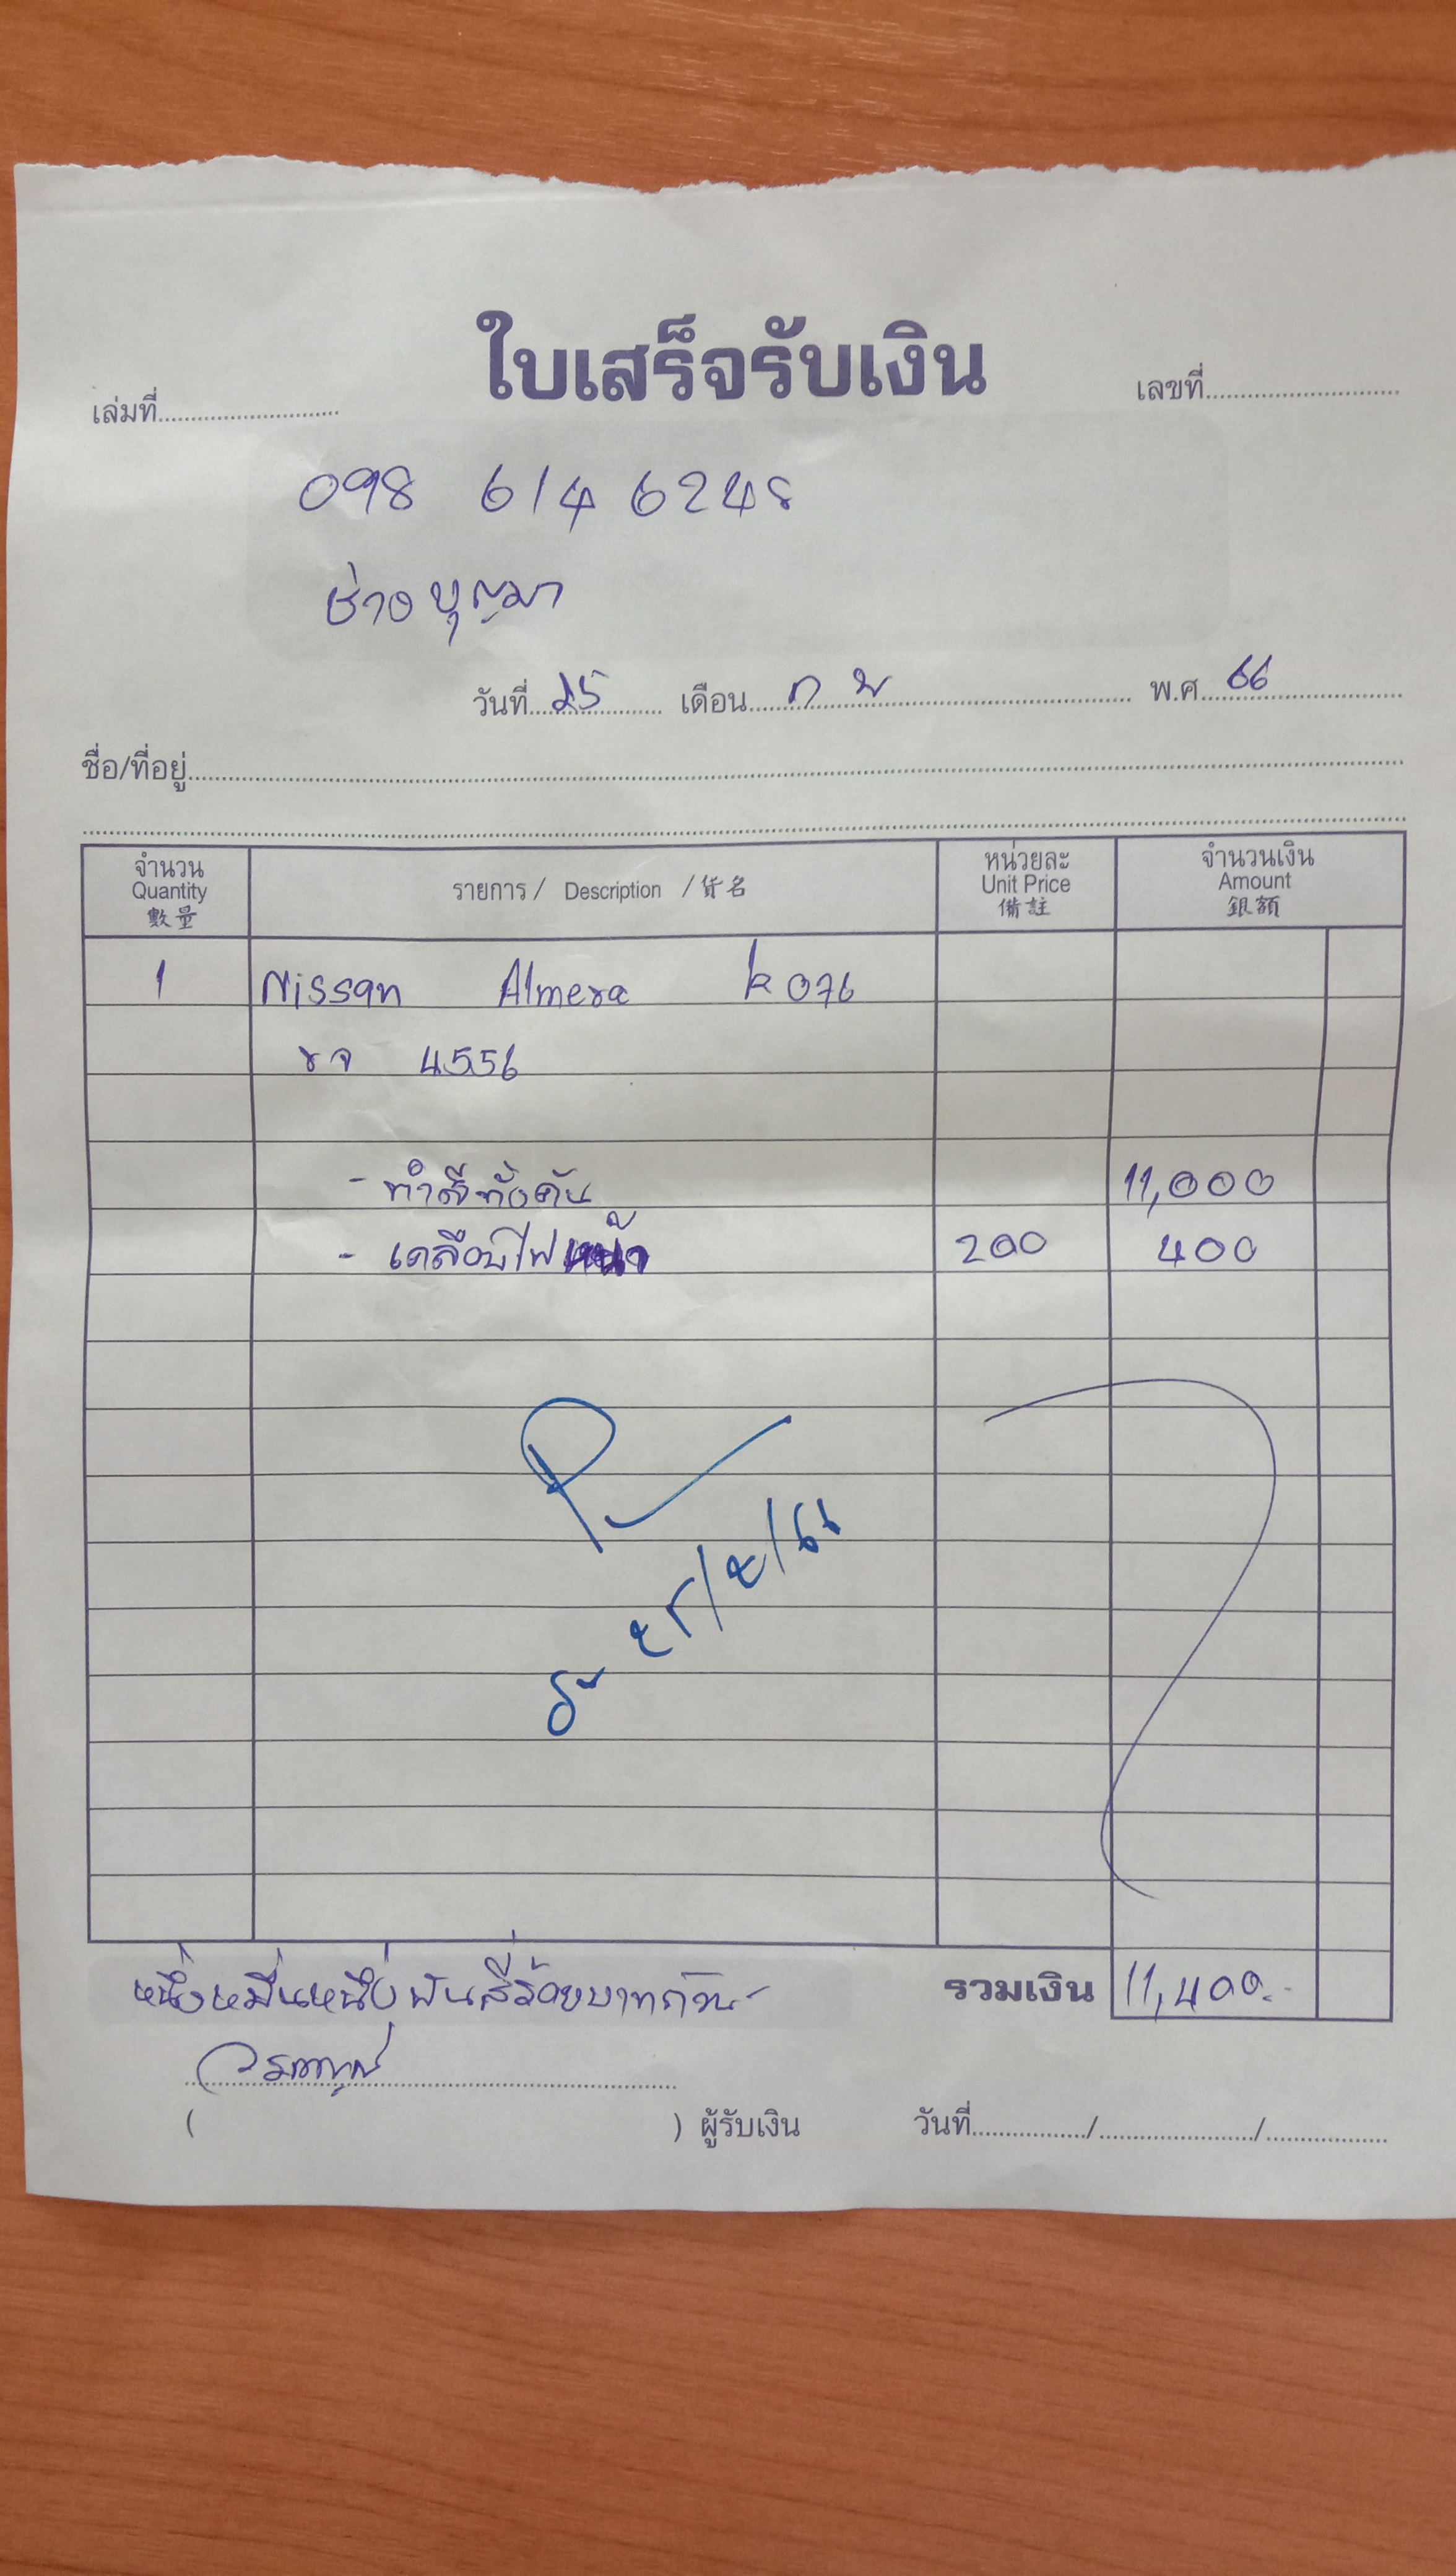 ใบเสร็จรับเงิน
เล่มที่ เลขที่
098 614 6248
ช่าง บุญมา
วันที่ 25 เดือน ก พ พ.ศ. 66
ชื่อ/ที่อยู่
จำนวน
Quantity
數量
รายการ / Description / 货名
หน่วยละ
Unit Price
備註
จำนวนเงิน
Amount
銀額
1 Nissan Almera k 076
รจ 4556
- ทำสีทั้งคัน 11,000
- เคลือบไฟหน้า 200 400
๒๕/๒/๖๖
หนึ่งหมื่นหนึ่งพันสี่ร้อยบาทถ้วน รวมเงิน 11,400.-
( ) ผู้รับเงิน วันที่ / /